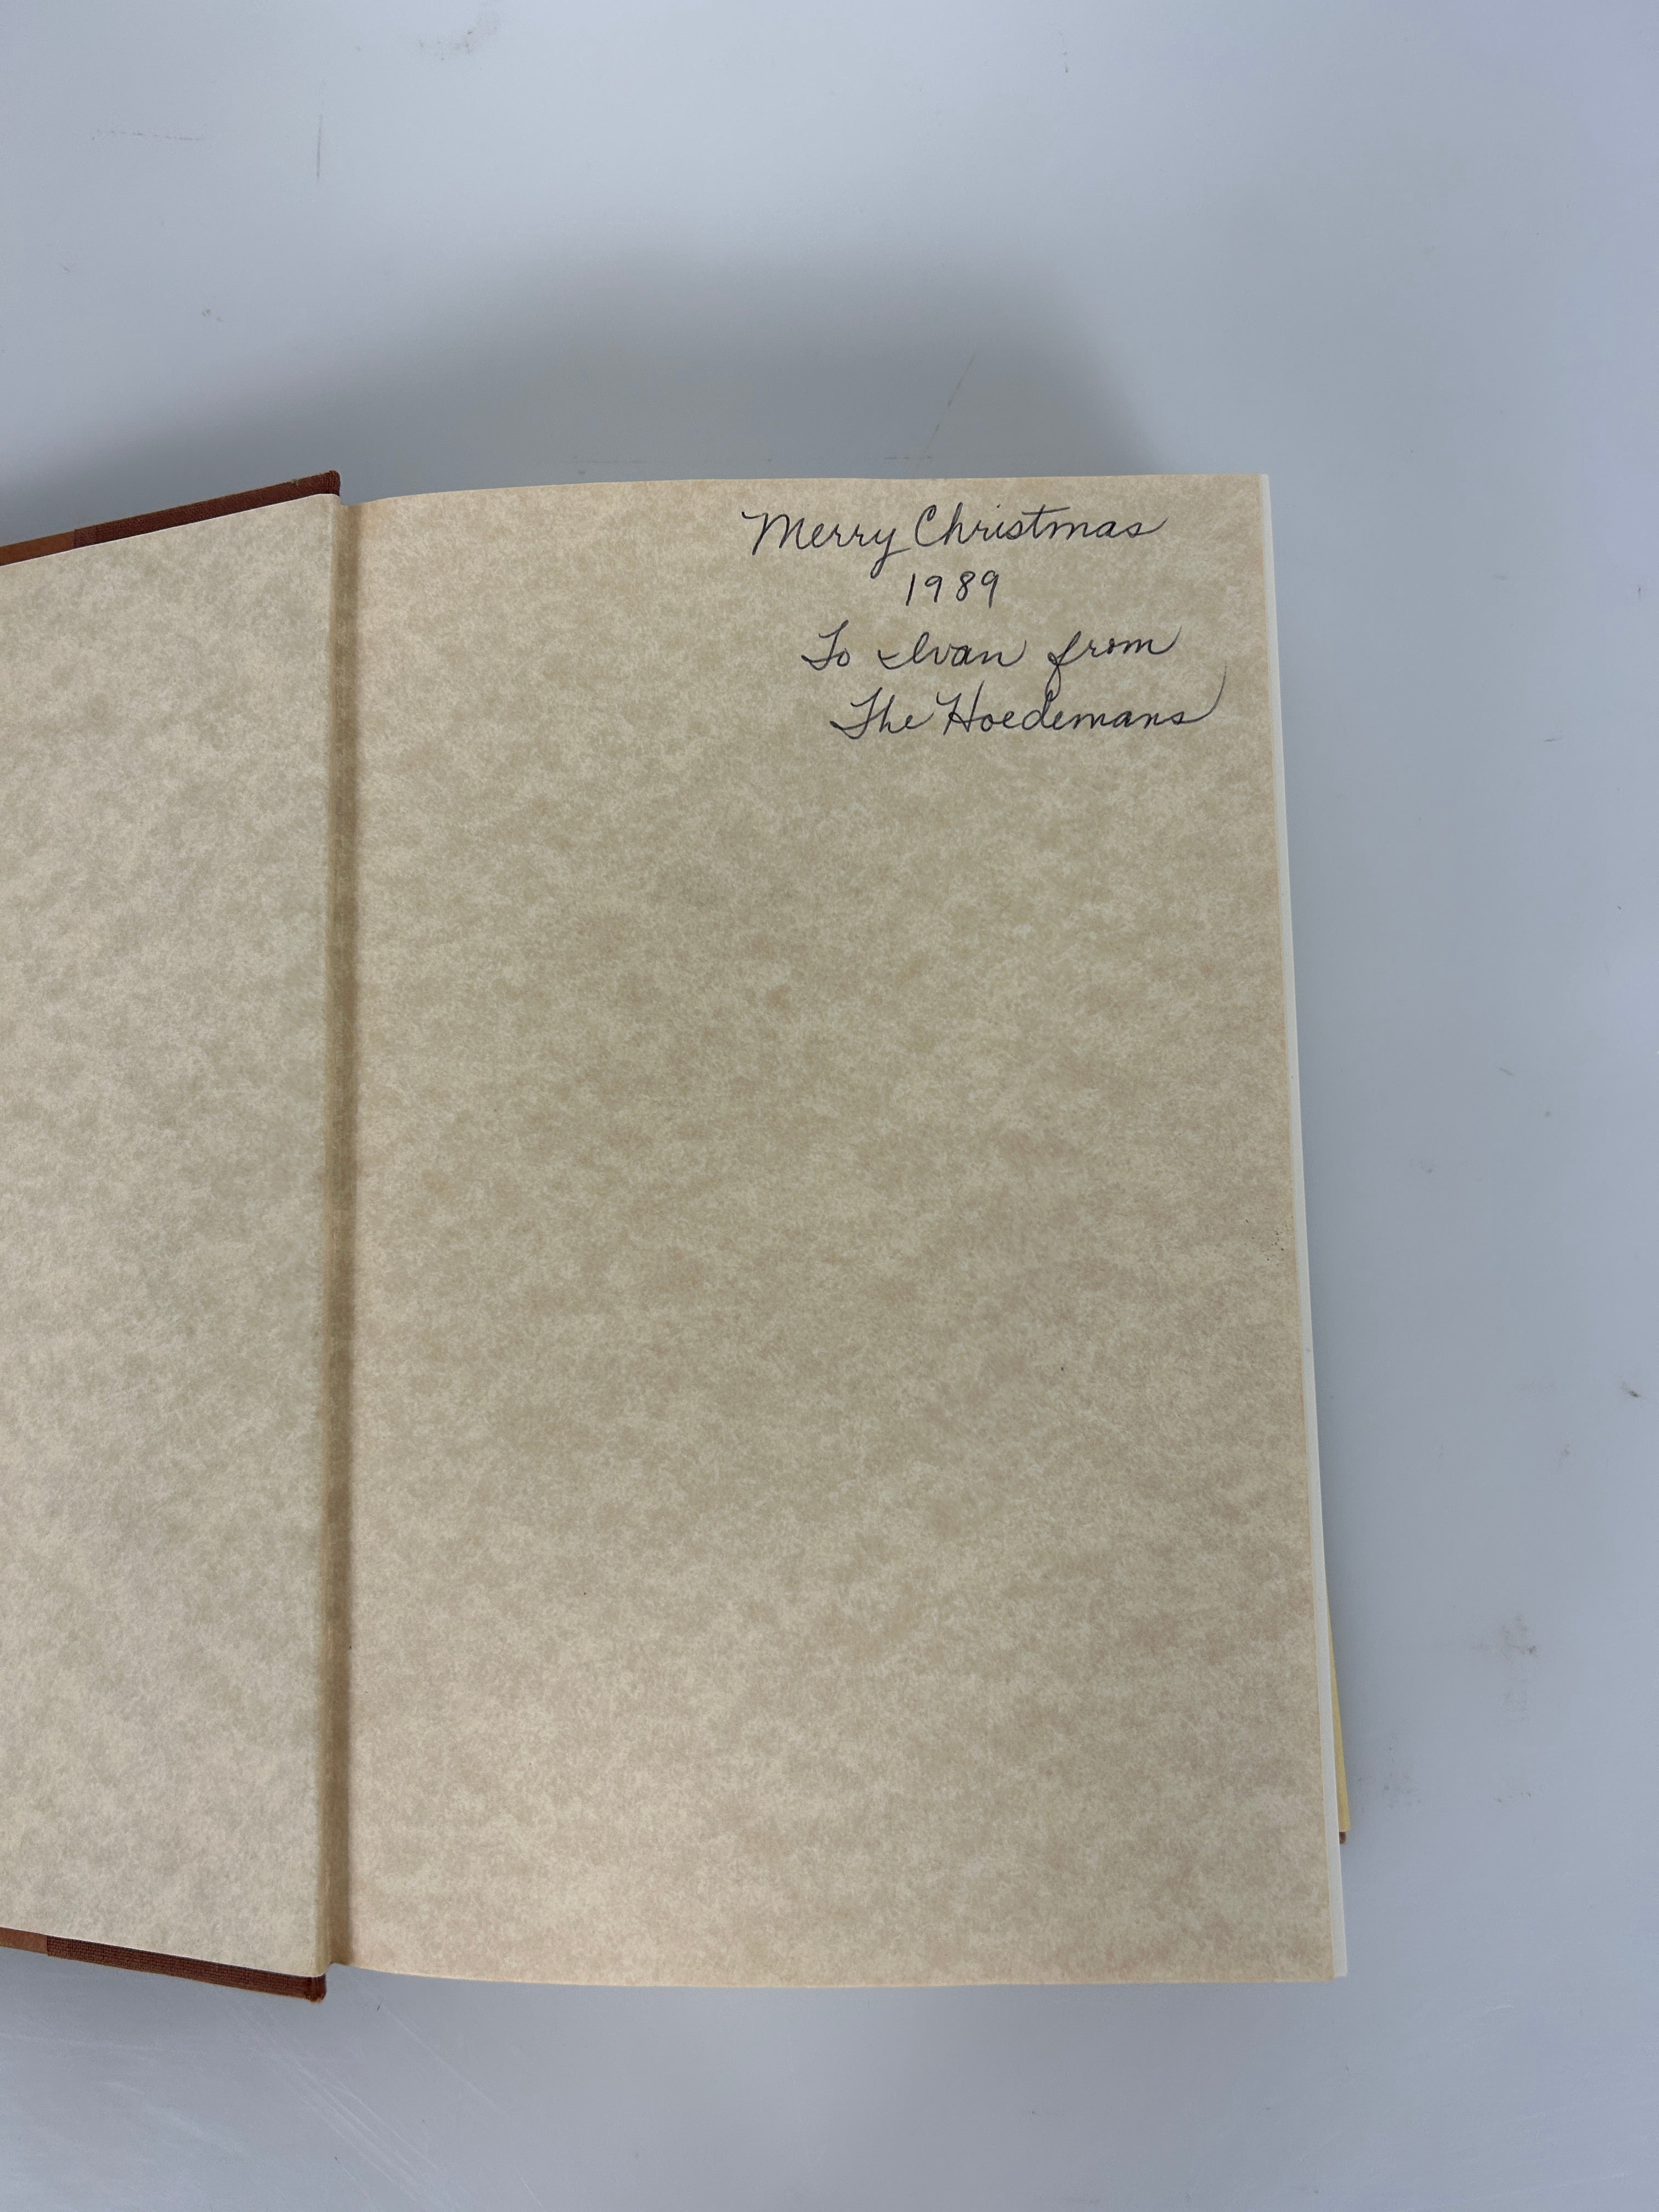 Merry Christmas
1989
To Ivan from
The Hoedemans